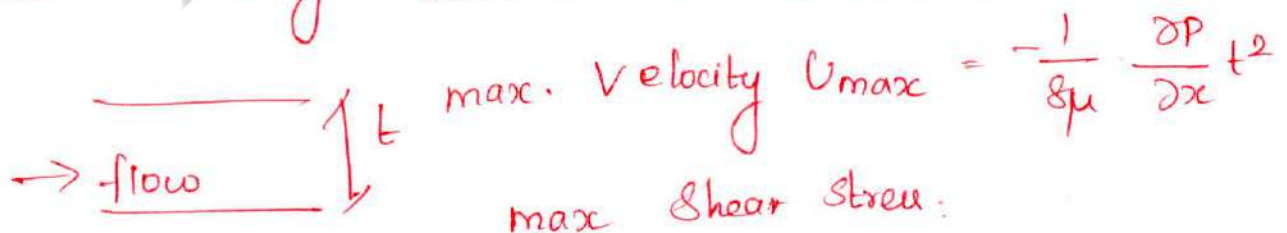 max. Velocity Umax = -1/8μ · ∂P/∂x t²
t
→ flow
max Shear Stress.